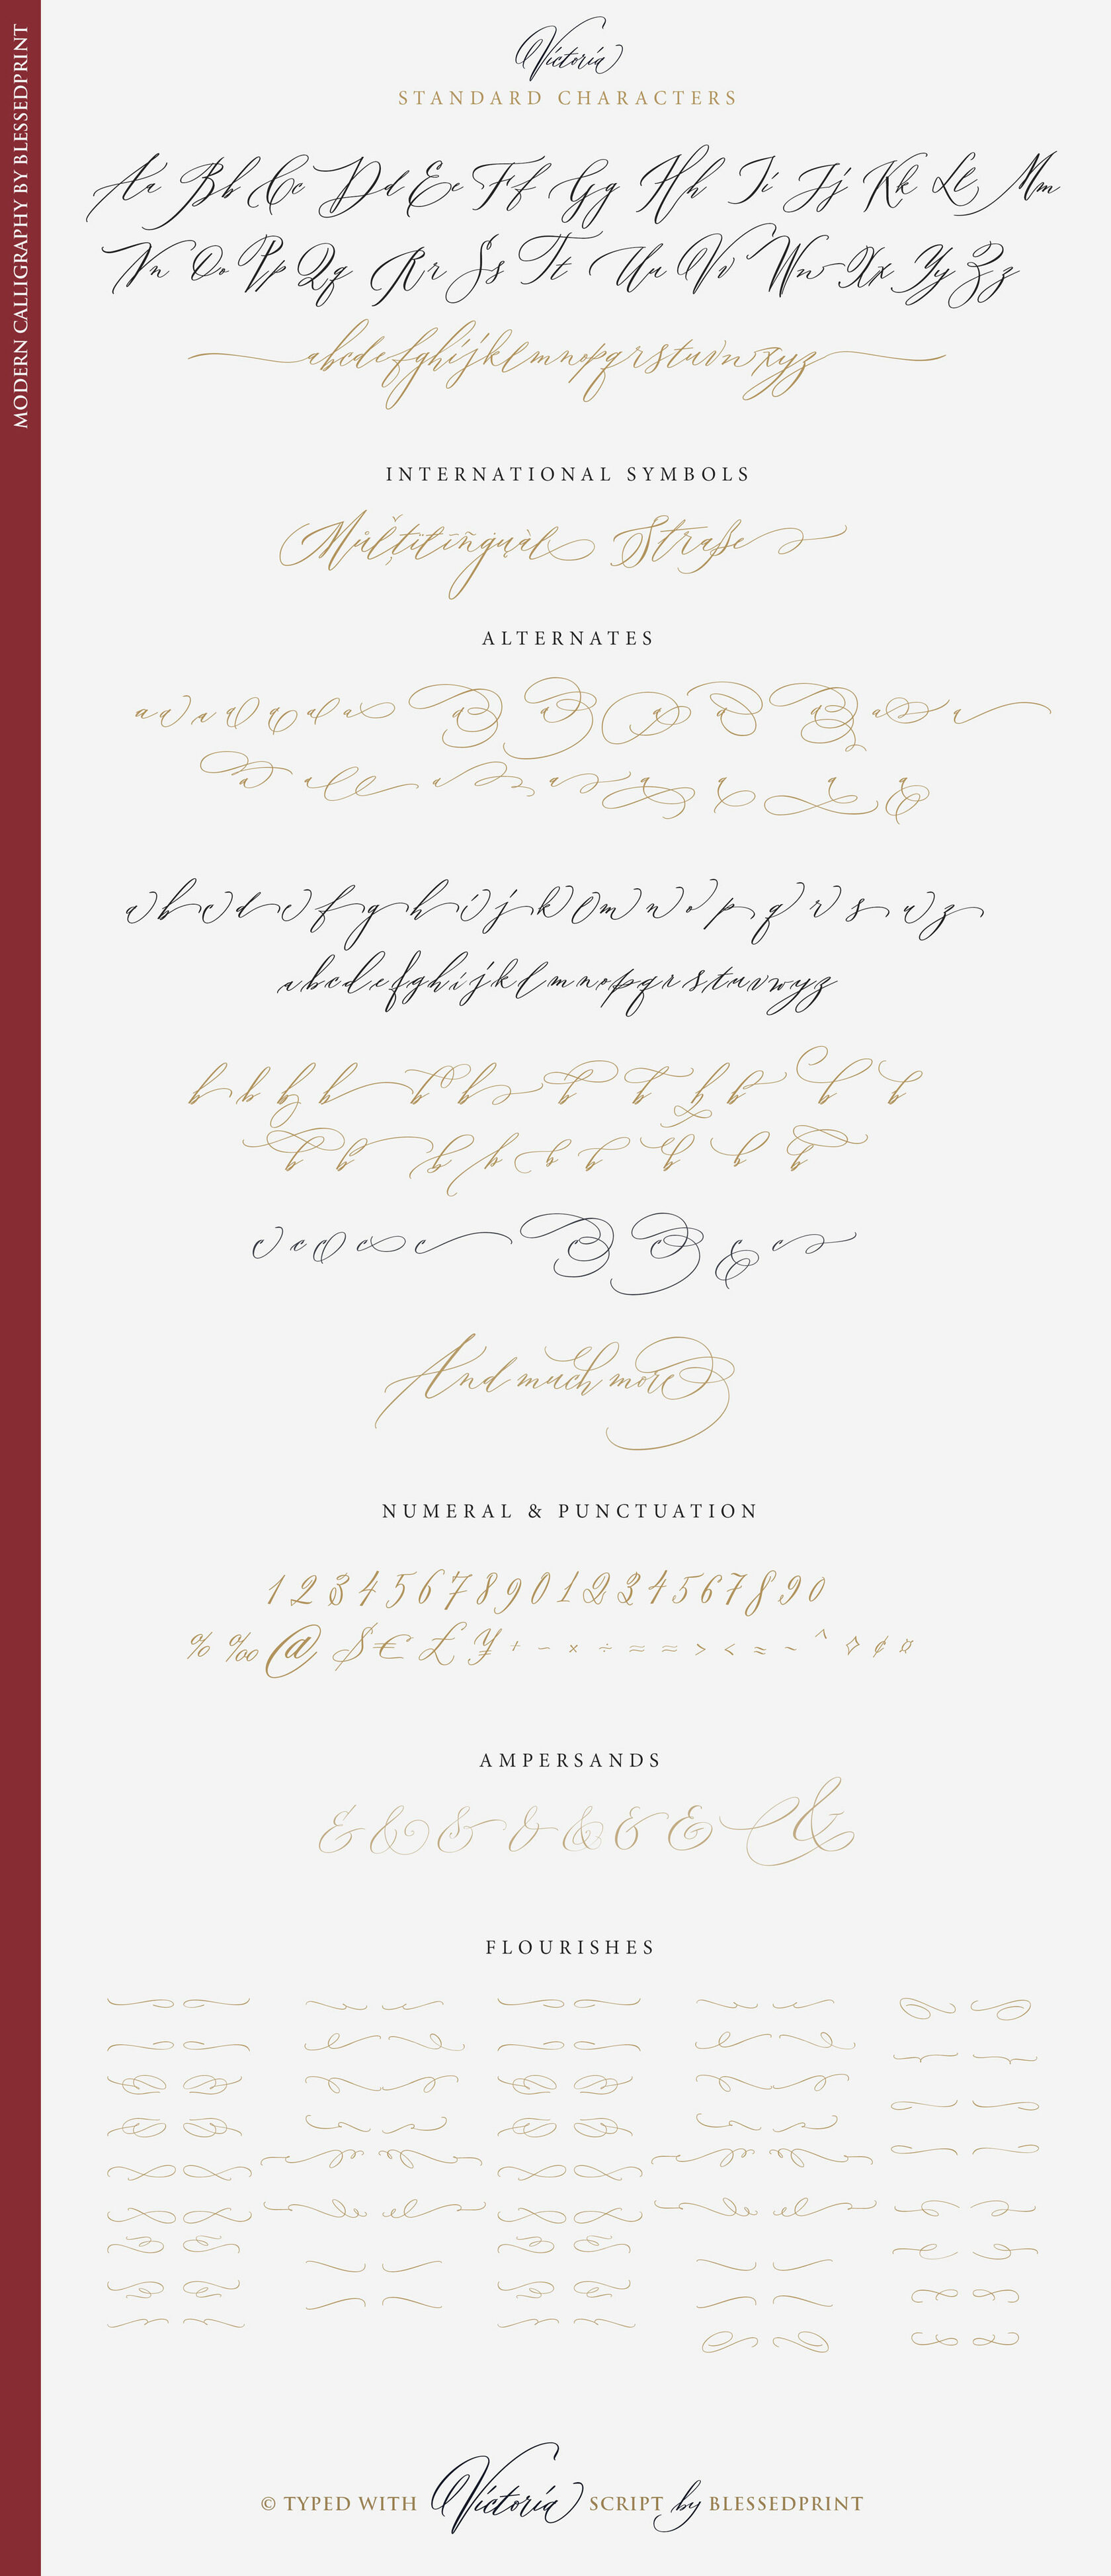 MODERN CALLIGRAPHY BY BLESSEDPRINT
Victoria
STANDARD CHARACTERS
Aa Bb Cc Dd Ee Ff Gg Hh Ii Jj Kk Ll Mm
Nn Oo Pp Qq Rr Ss Tt Uu Vv Ww Xx Yy Zz
abcdefghijklmnopqrstuvwxyz
INTERNATIONAL SYMBOLS
Straße
ALTERNATES
a a a a a a a a a a a a a a
a a a a a a a a
a b c d e f g h i j k l m n o p q r s u z
a b c d e f g h i j k l m n o p q r s t u v w y z
b b b b b b b b b b b b
b b b b b b b b b
c c c c c c c c c
And much more
NUMERAL & PUNCTUATION
1 2 3 4 5 6 7 8 9 0 1 2 3 4 5 6 7 8 9 0
% ‰ @ $ € £ ¥ + − × ÷ = ≈ > < ≈ ~ ^ ◊ ¢ ¤
AMPERSANDS
& & & & & & & &
FLOURISHES
© TYPED WITH Victoria SCRIPT by BLESSEDPRINT